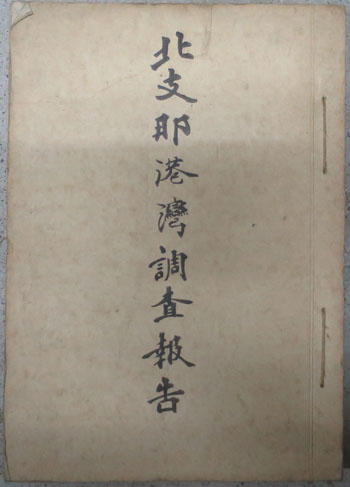 北支那港灣調査報告